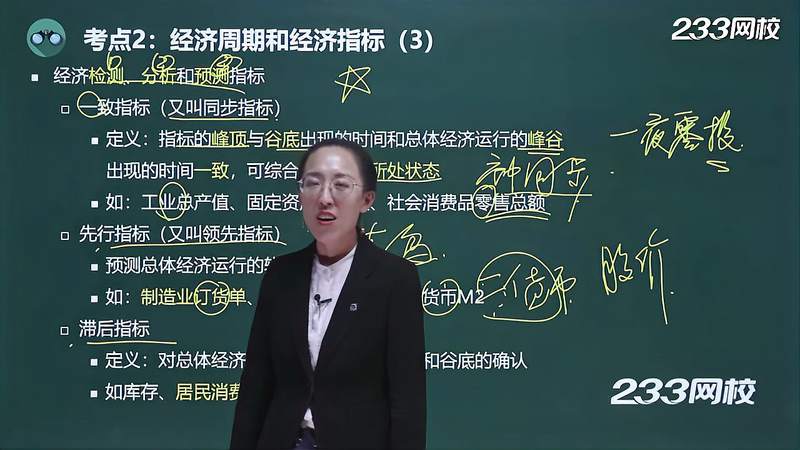 考点2：经济周期和经济指标（3）
233网校
经济检测、分析和预测指标
一致指标（又叫同步指标）
定义：指标的峰顶与谷底出现的时间和总体经济运行的峰谷
出现的时间一致，可综合 所处状态
一夜零投
如：工业总产值、固定资 社会消费品零售总额
先行指标（又叫领先指标）
预测总体经济运行的
如：制造业订货单、 货币M2
股价
滞后指标
定义：对总体经济 和谷底的确认
如库存、居民消费
233网校